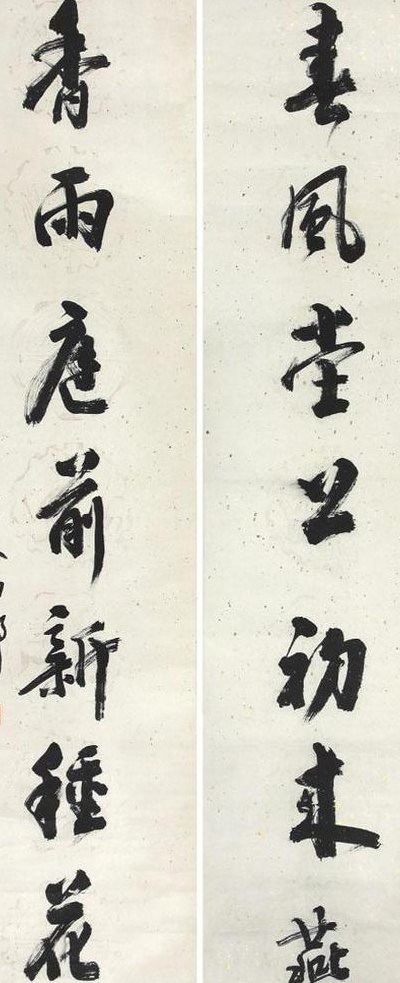 春風堂上初来燕
香雨庭前新種花